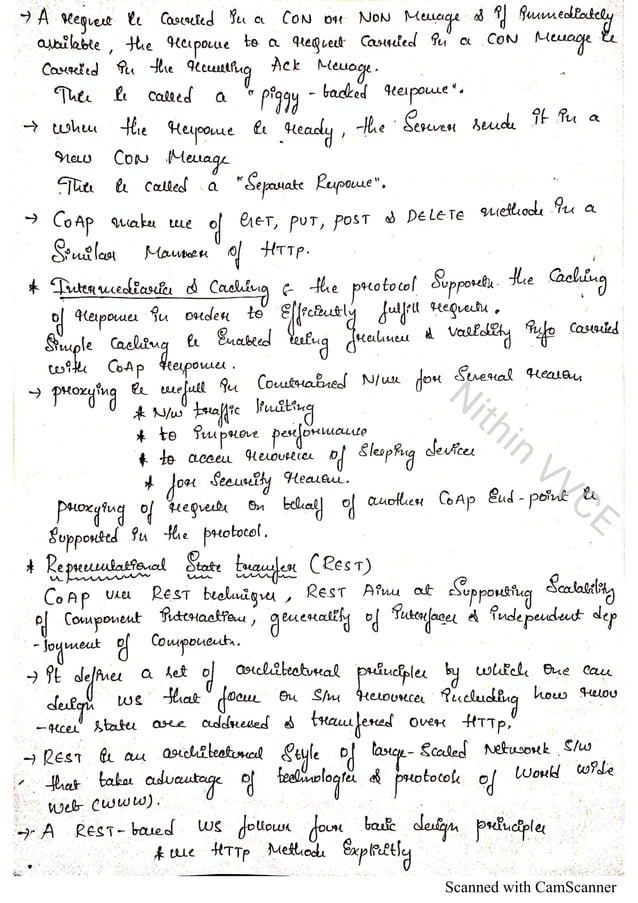 → A request is carried in a CON or NON Message & if immediately
available, the response to a request carried in a CON Message is
carried in the resulting Ack Message.
This is called a "piggy-backed response".
→ when the response is ready, the Server sends it in a
new CON Message
This is called a "Separate Response".
→ CoAp makes use of GET, PUT, POST & DELETE methods in a
Similar Manner of HTTP.
* Intermediaries & Caching : the protocol Supports the Caching
of responses in order to Efficiently fulfill requests.
Simple Caching is Enabled using freshness & validity info carried
with CoAp responses.
→ proxying is usefull in Constrained N/ws for Several reasons
* N/w traffic limiting
* to improve performance
* to access resources of Sleeping devices
* for Security reasons.
proxying of requests on behalf of another CoAp End-point is
Supported in the protocol.
* Representational State transfer (REST)
CoAp uses REST techniques, REST Aims at Supporting Scalability
of Component interactions, generality of interfaces & independent dep
-loyment of Components.
→ it defines a set of architectural principles by which one can
design WS that focus on S/m resources including how resou
-rces states are addressed & transfered over HTTP.
→ REST is an architectural Style of large-Scaled Network S/w
that takes advantage of technologies & protocols of World wide
web (www).
→ A REST-based WS follows four basic design principles
* use HTTP Methods Explicitly
Nithin VVCE
Scanned with CamScanner